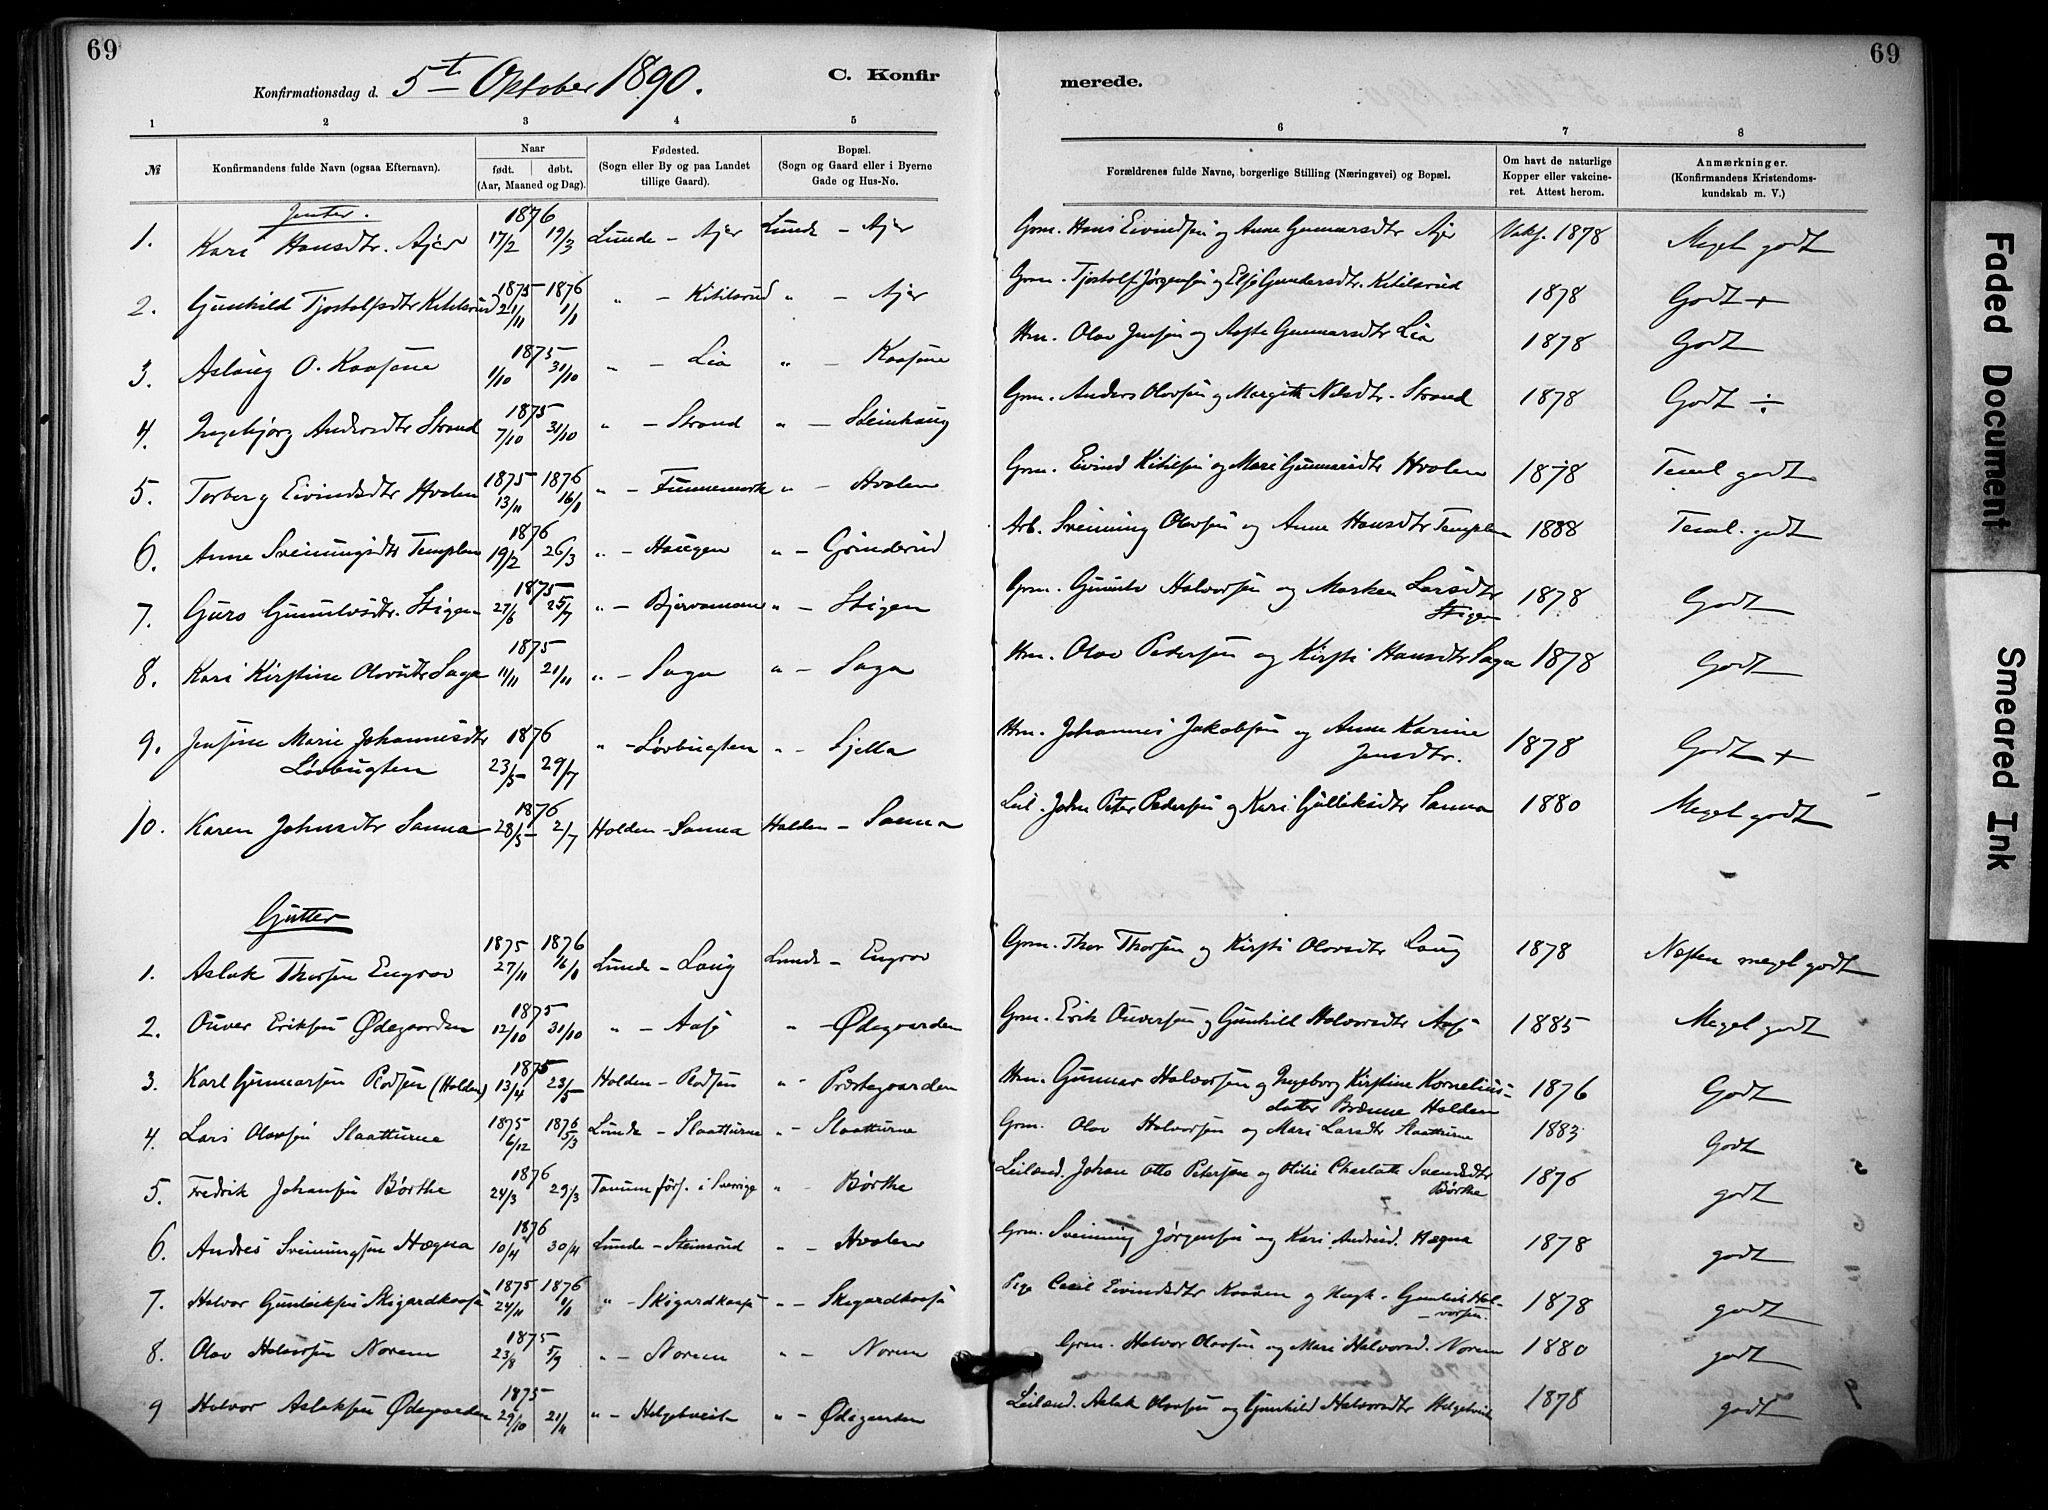 69
69
Konfirmationsdag d. 5te Oktober 1890.
C. Konfir
merede.
1 2 3 4 5 6 7 8
№ Konfirmandens fulde Navn (ogsaa Efternavn).
Naar
født. døbt.
(Aar, Maaned og Dag).
Fødested.
(Sogn eller By og paa Landet
tillige Gaard).
Bopæl.
(Sogn og Gaard eller i Byerne
Gade og Hus-No.
Forældrenes fulde Navne, borgerlige Stilling (Næringsvei) og Bopæl.
Om havt de naturlige
Kopper eller vakcine-
ret. Attest herom.
Anmærkninger.
(Konfirmandens Kristendoms-
kundskab m. V.)
Jenter.
1. Kari Hansdtr. Ajer 1876 17/2 19/3 Lunde - Ajer Lunde - Ajer Grm. Hans Eivindsen og Anne Gunnarsdtr Ajer Vakc. 1878 Meget godt
2. Gunhild Tjostolfsdtr Kitilsrud 1875 1876 21/11 1/1 " - Kitilsrud " - Ajer Grm. Tjostolf Jørgensen og Else Gundersdtr. Kitilsrud 1878 Godt +
3. Aslaug O. Kaasene 1875 1/10 31/10 " - Lia " - Kaasene Hm. Olav Jensen og Aaste Gunnarsdtr Lia 1878 Godt
4. Ingebjørg Andersdtr Strand 1875 7/10 31/10 " - Strand " - Steinhaug Grm. Anders Olavsen og Margith Nilsdtr. Strand 1878 Godt ÷
5. Torberg Eivindsdtr Hvalen 1875 1876 13/11 16/1 " - Funnemark " - Hvalen Grm. Eivind Kitilsen og Mari Gunnarsdtr Hvalen 1878 Teml godt
6. Anne Sveinungsdtr Templen 1876 19/2 26/3 " - Haugen " - Grinderud Arb. Sveinung Olavsen og Anne Hansdtr Templen 1888 Teml. godt
7. Guro Gunulvsdtr. Stigen 1875 27/6 25/7 " - Bjervamoen " - Stigen Grm. Gunulv Halvorsen og Marken Larsdtr 1878 Godt
Stigen
8. Kari Kirstine Olavsdtr Saga 1875 11/11 21/11 " - Saga " - Saga Hm. Olav Pedersen og Kirsti Hansdtr Saga 1878 Godt
9. Jensine Marie Johannesdtr 1876 " - Løvbugten " - Sjella Hm. Johannes Jakobsen og Anne Karine 1878 Godt +
Løvbugten 23/5 29/7 Jensdtr.
10. Karen Johnsdtr Sanna 1876 28/5 2/7 Holden - Sanna Holden - Sanna Leil. John Peter Pedersen og Kari Gulliksdtr Sanna 1880 Meget godt
Gutter
1. Aslak Thorsen Engrav 1875 1876 27/11 16/1 Lunde - Laug Lunde - Engrav Grm. Thor Thorsen og Kirsti Olavsdtr Laug 1878 Næsten meget godt
2. Ouver Eriksen Ødegaarden 1875 12/10 31/10 " - Aase " - Ødegaarden Grm. Erik Ouversen og Gunhild Halvorsdtr Aase 1885 Meget godt
3. Karl Gunnarsen Rødsen (Holden) 1875 13/4 23/5 Holden - Rødsen " Præstegaarden Hm. Gunnar Halvorsen og Ingeborg Kirstine Kornelius- 1876 Godt
datter Brænne Holden
4. Lars Olavsen Slaatturne 1875 1876 6/12 5/3 Lunde - Slaatturne " - Slaatturne Grm. Olav Halvorsen og Mari Larsdtr Slaatturne 1883 Godt
5. Fredrik Johansen Børthe 1876 24/3 29/3 Tanum førs. i Sverrige " Børthe Leilænd. Johan Otto Petersen og Olilie Charlotte Svendsdtr 1876 godt
Børthe
6. Andres Sveinungsen Hægna 1876 10/4 30/4 Lunde - Steinsrud " - Hvalen Grm. Sveinung Jørgensen og Kari Andresd. Hægna 1878 godt
7. Halvor Gunleiksen Skigardkaasa 1875 1876 24/11 1/1 " - Skigardkaasa " - Skigardkaasa Pige Cecil Eivindsdtr Kaasen og Ungk. Gunleik Hal- 1878 godt
vorsen.
8. Olav Halvorsen Norem 1875 23/8 5/9 " - Norem " - Norem Grm. Halvor Olavsen og Mari Halvorsd. Norem 1880 godt
9 Halvor Aslaksen Ødegaarden 1875 29/10 21/11 " - Helgetveit " - Ødegaarden Leilænd. Aslak Olavsen og Gunhild Halvorsdtr Helgetveit 1878 godt
Faded Document
Smeared Ink